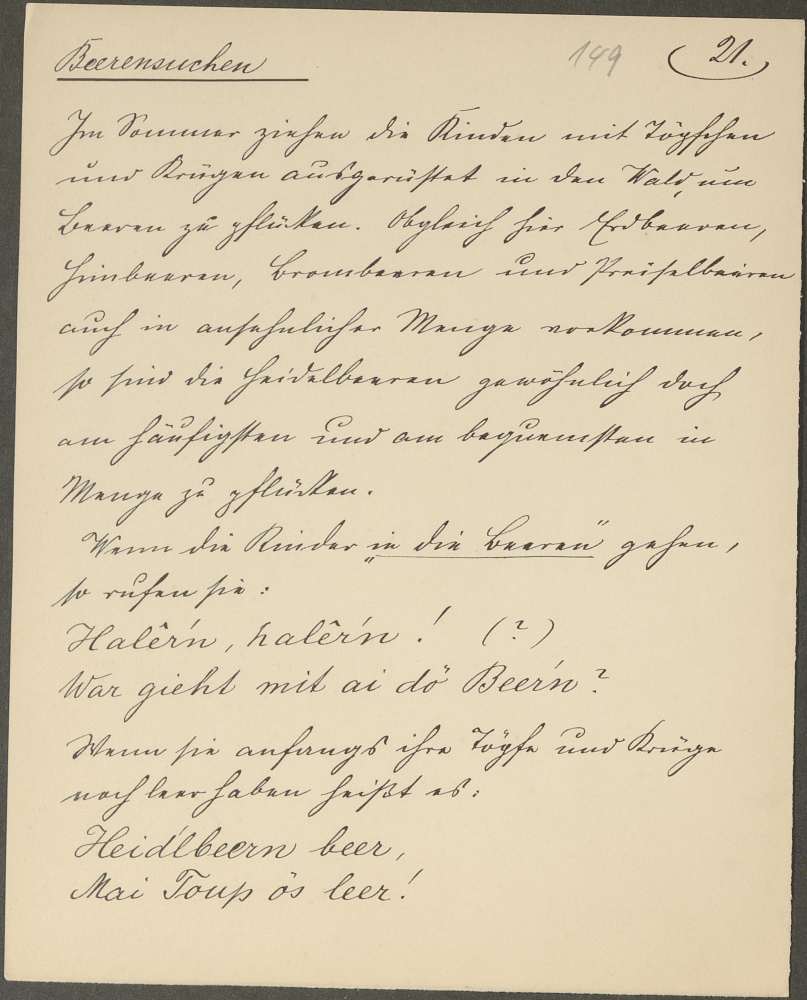 Beerensuchen 149 21.
Im Sommer ziehen die Kinder mit Töpfchen
und Krügen ausgerüstet in den Wald, um
Beeren zu pflücken. Obgleich hier Erdbeeren,
Himbeeren, Brombeeren und Preiselbeeren
auch in ansehnlicher Menge vorkommen,
so sind die Heidelbeeren gewöhnlich doch
am häufigsten und am bequemsten in
Menge zu pflücken.
Wenn die Kinder „in die Beeren" gehen,
so rufen sie:
Halêr'n, halêr'n! (?)
War gieht mit ai dö Beer'n?
Wenn sie anfangs ihre Töpfe und Krüge
noch leer haben heißt es:
Heid'lbeern beer,
Mai Toup ös leer!